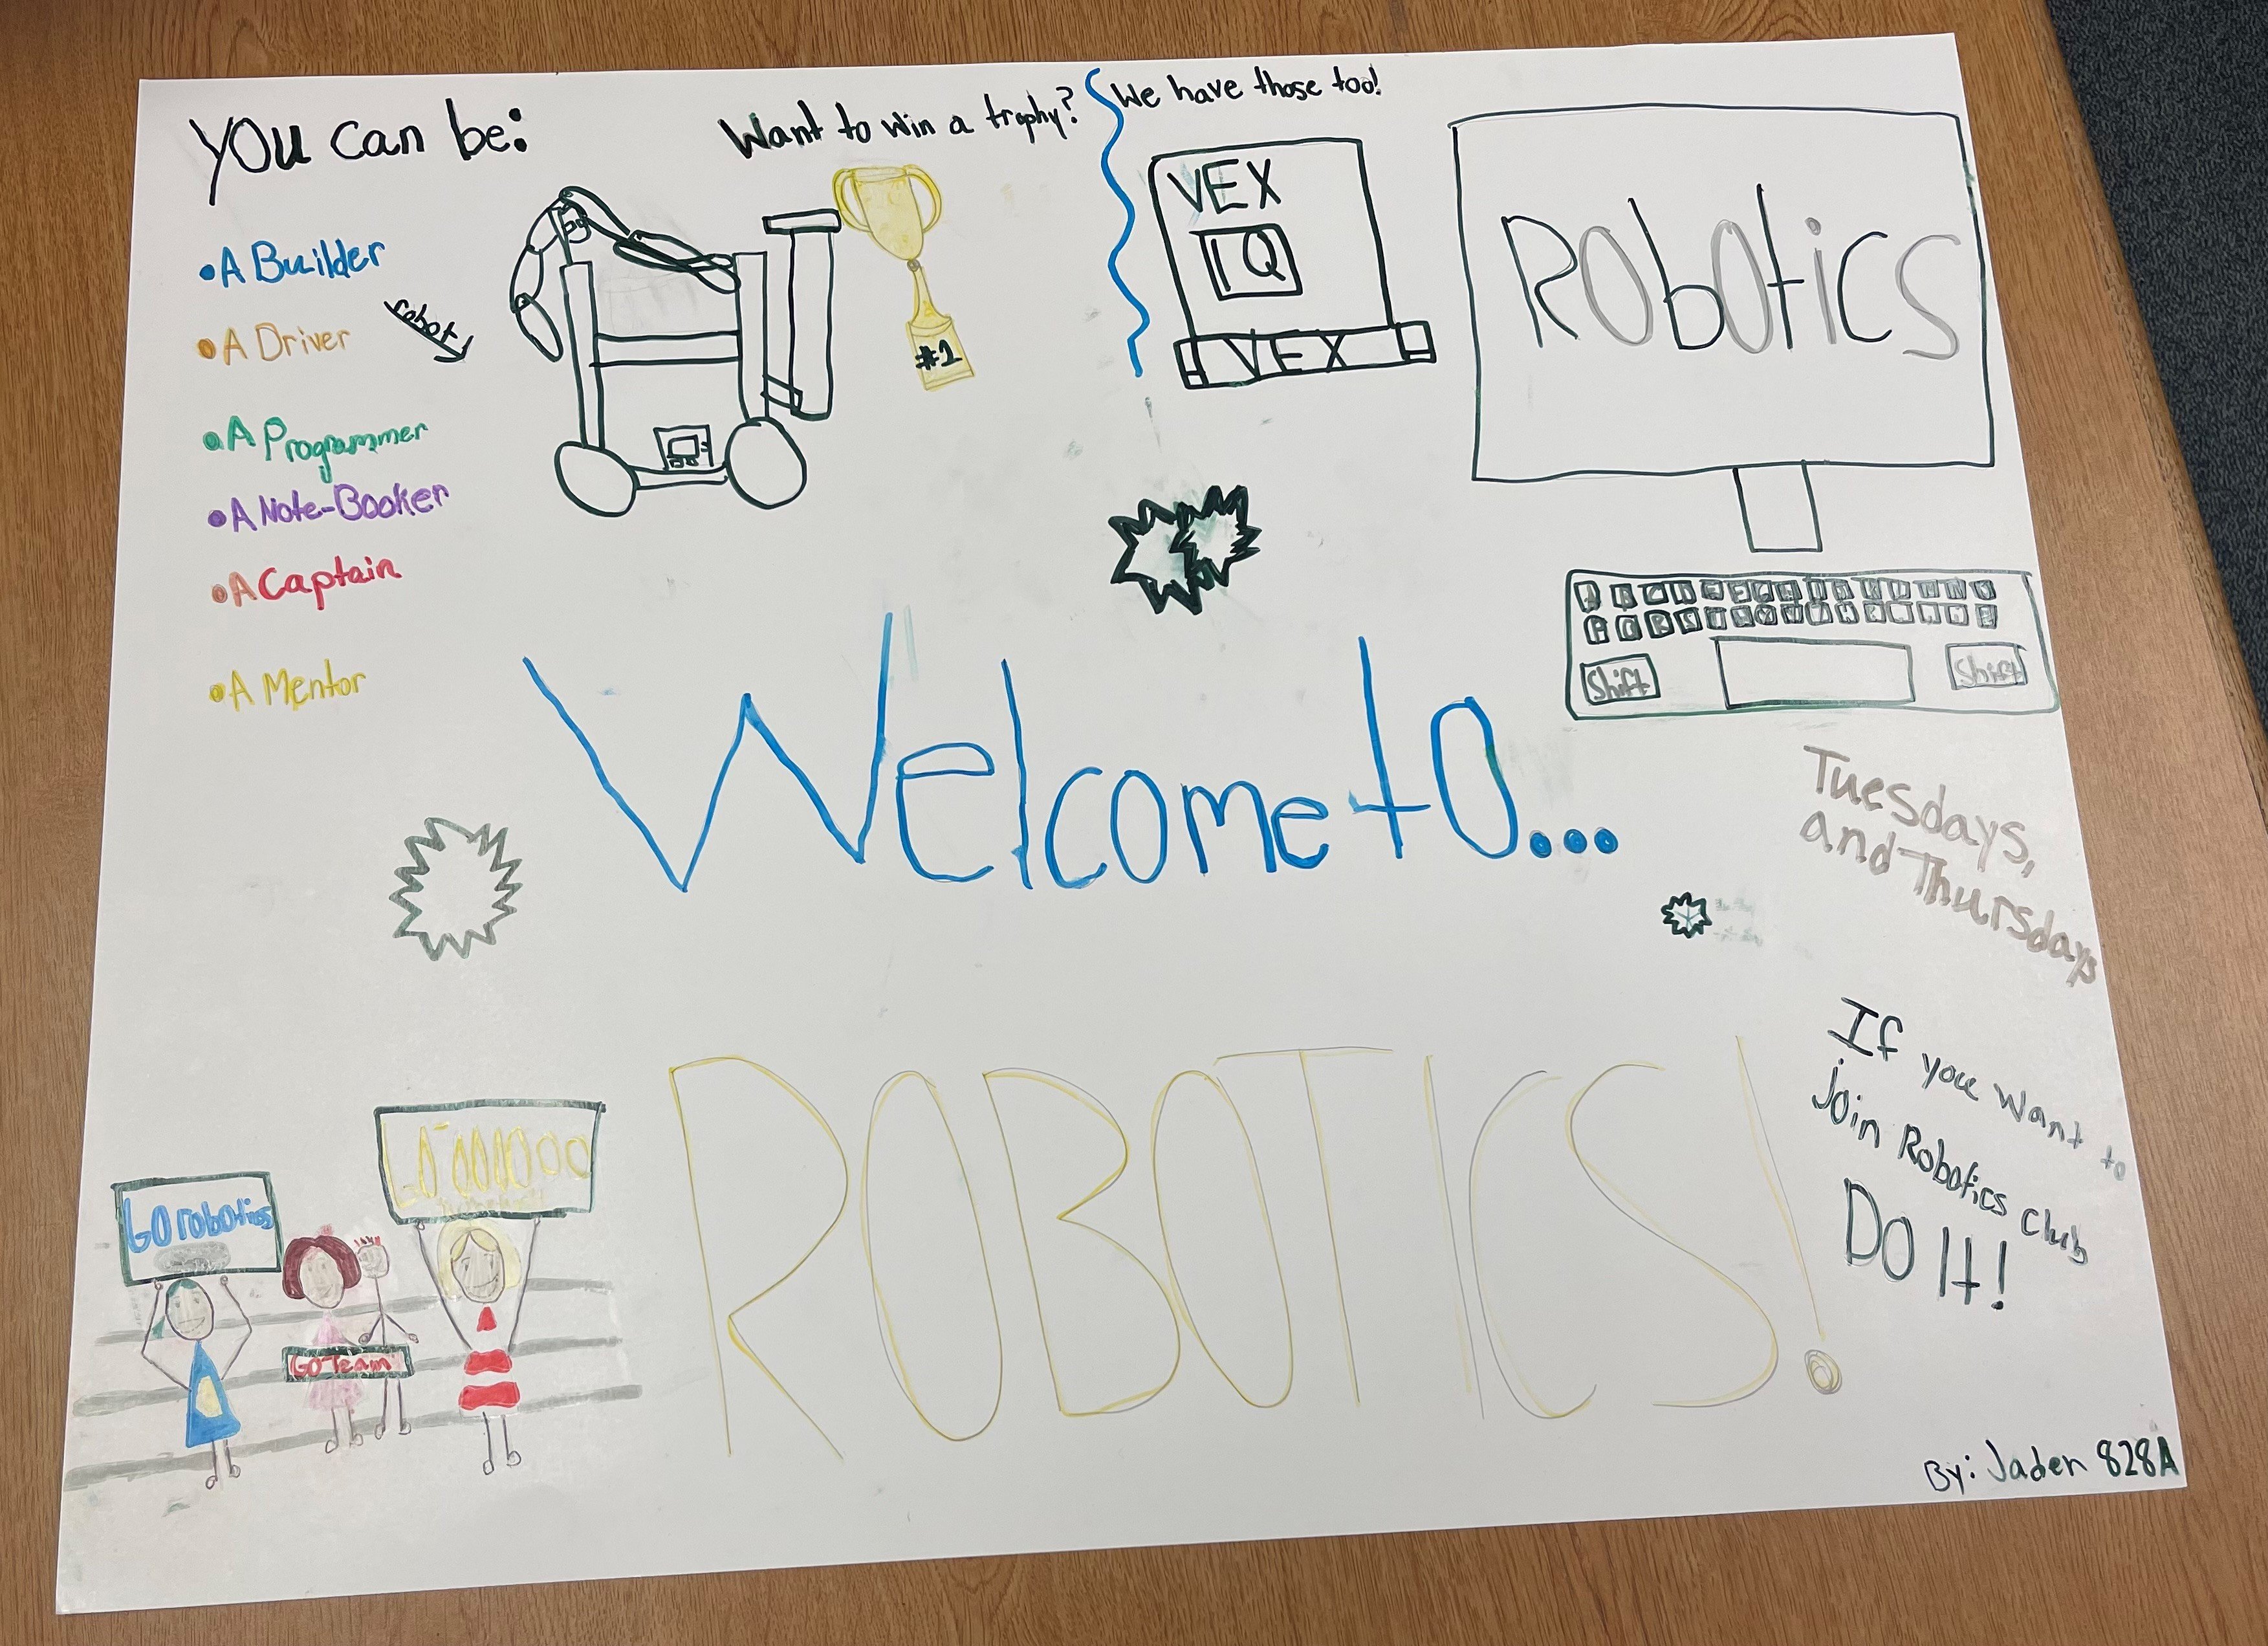 You can be:
• A Builder
• A Driver
• A Programmer
• A Note-Booker
• A Captain
• A Mentor
robot
Want to win a trophy?
#1
We have those too!
VEX
IQ
VEX
Robotics
Shift
Shift
Welcome to...
ROBOTICS!
Tuesdays,
and Thursdays
If you want to
join Robotics club
DO It!
GO robotics
GO Team
By: Jaden 828A